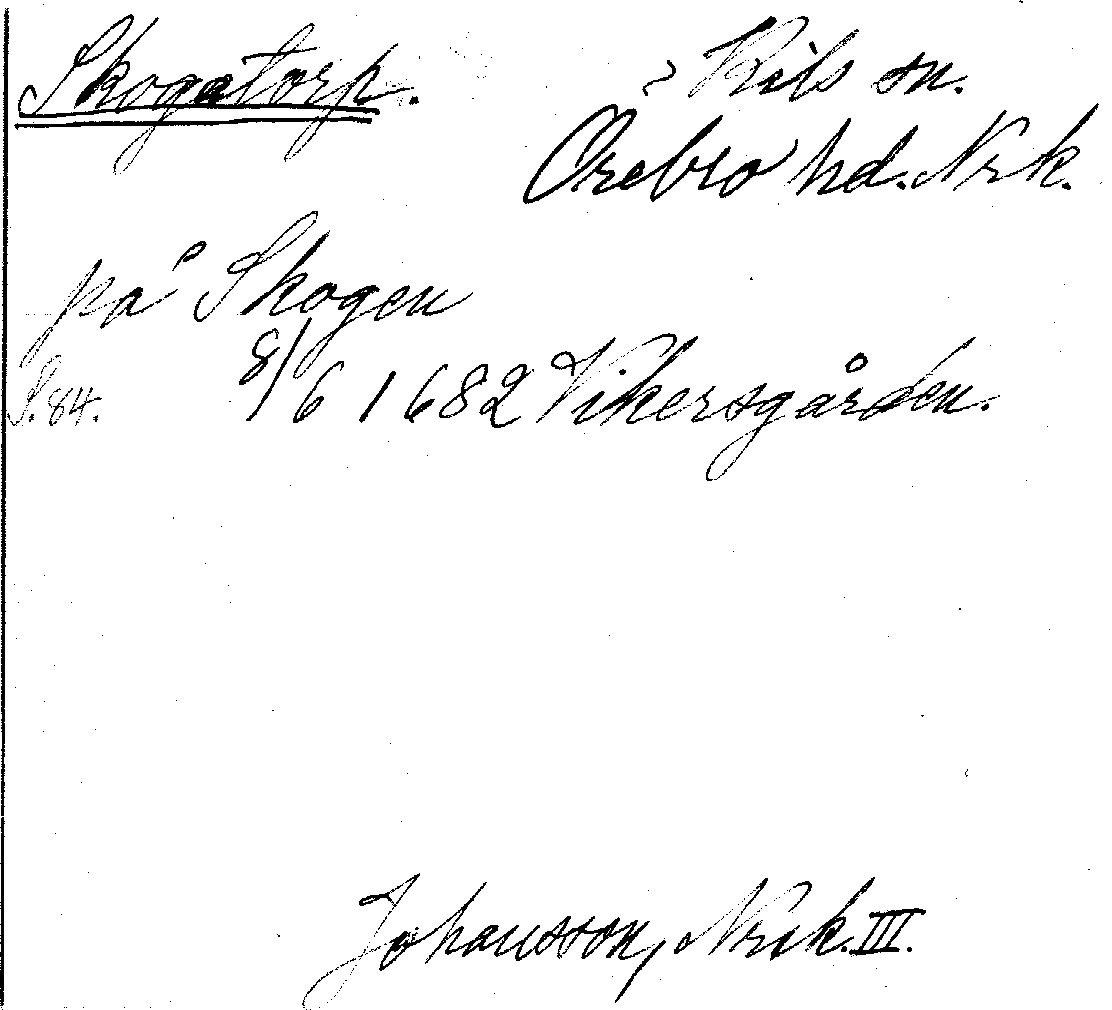 Skogatorp. Kils sn.
Örebro hd. Nrk.
på Skogen
S. 84. 8/6 1682 Vikersgården.
Johansson, Nrk. III.